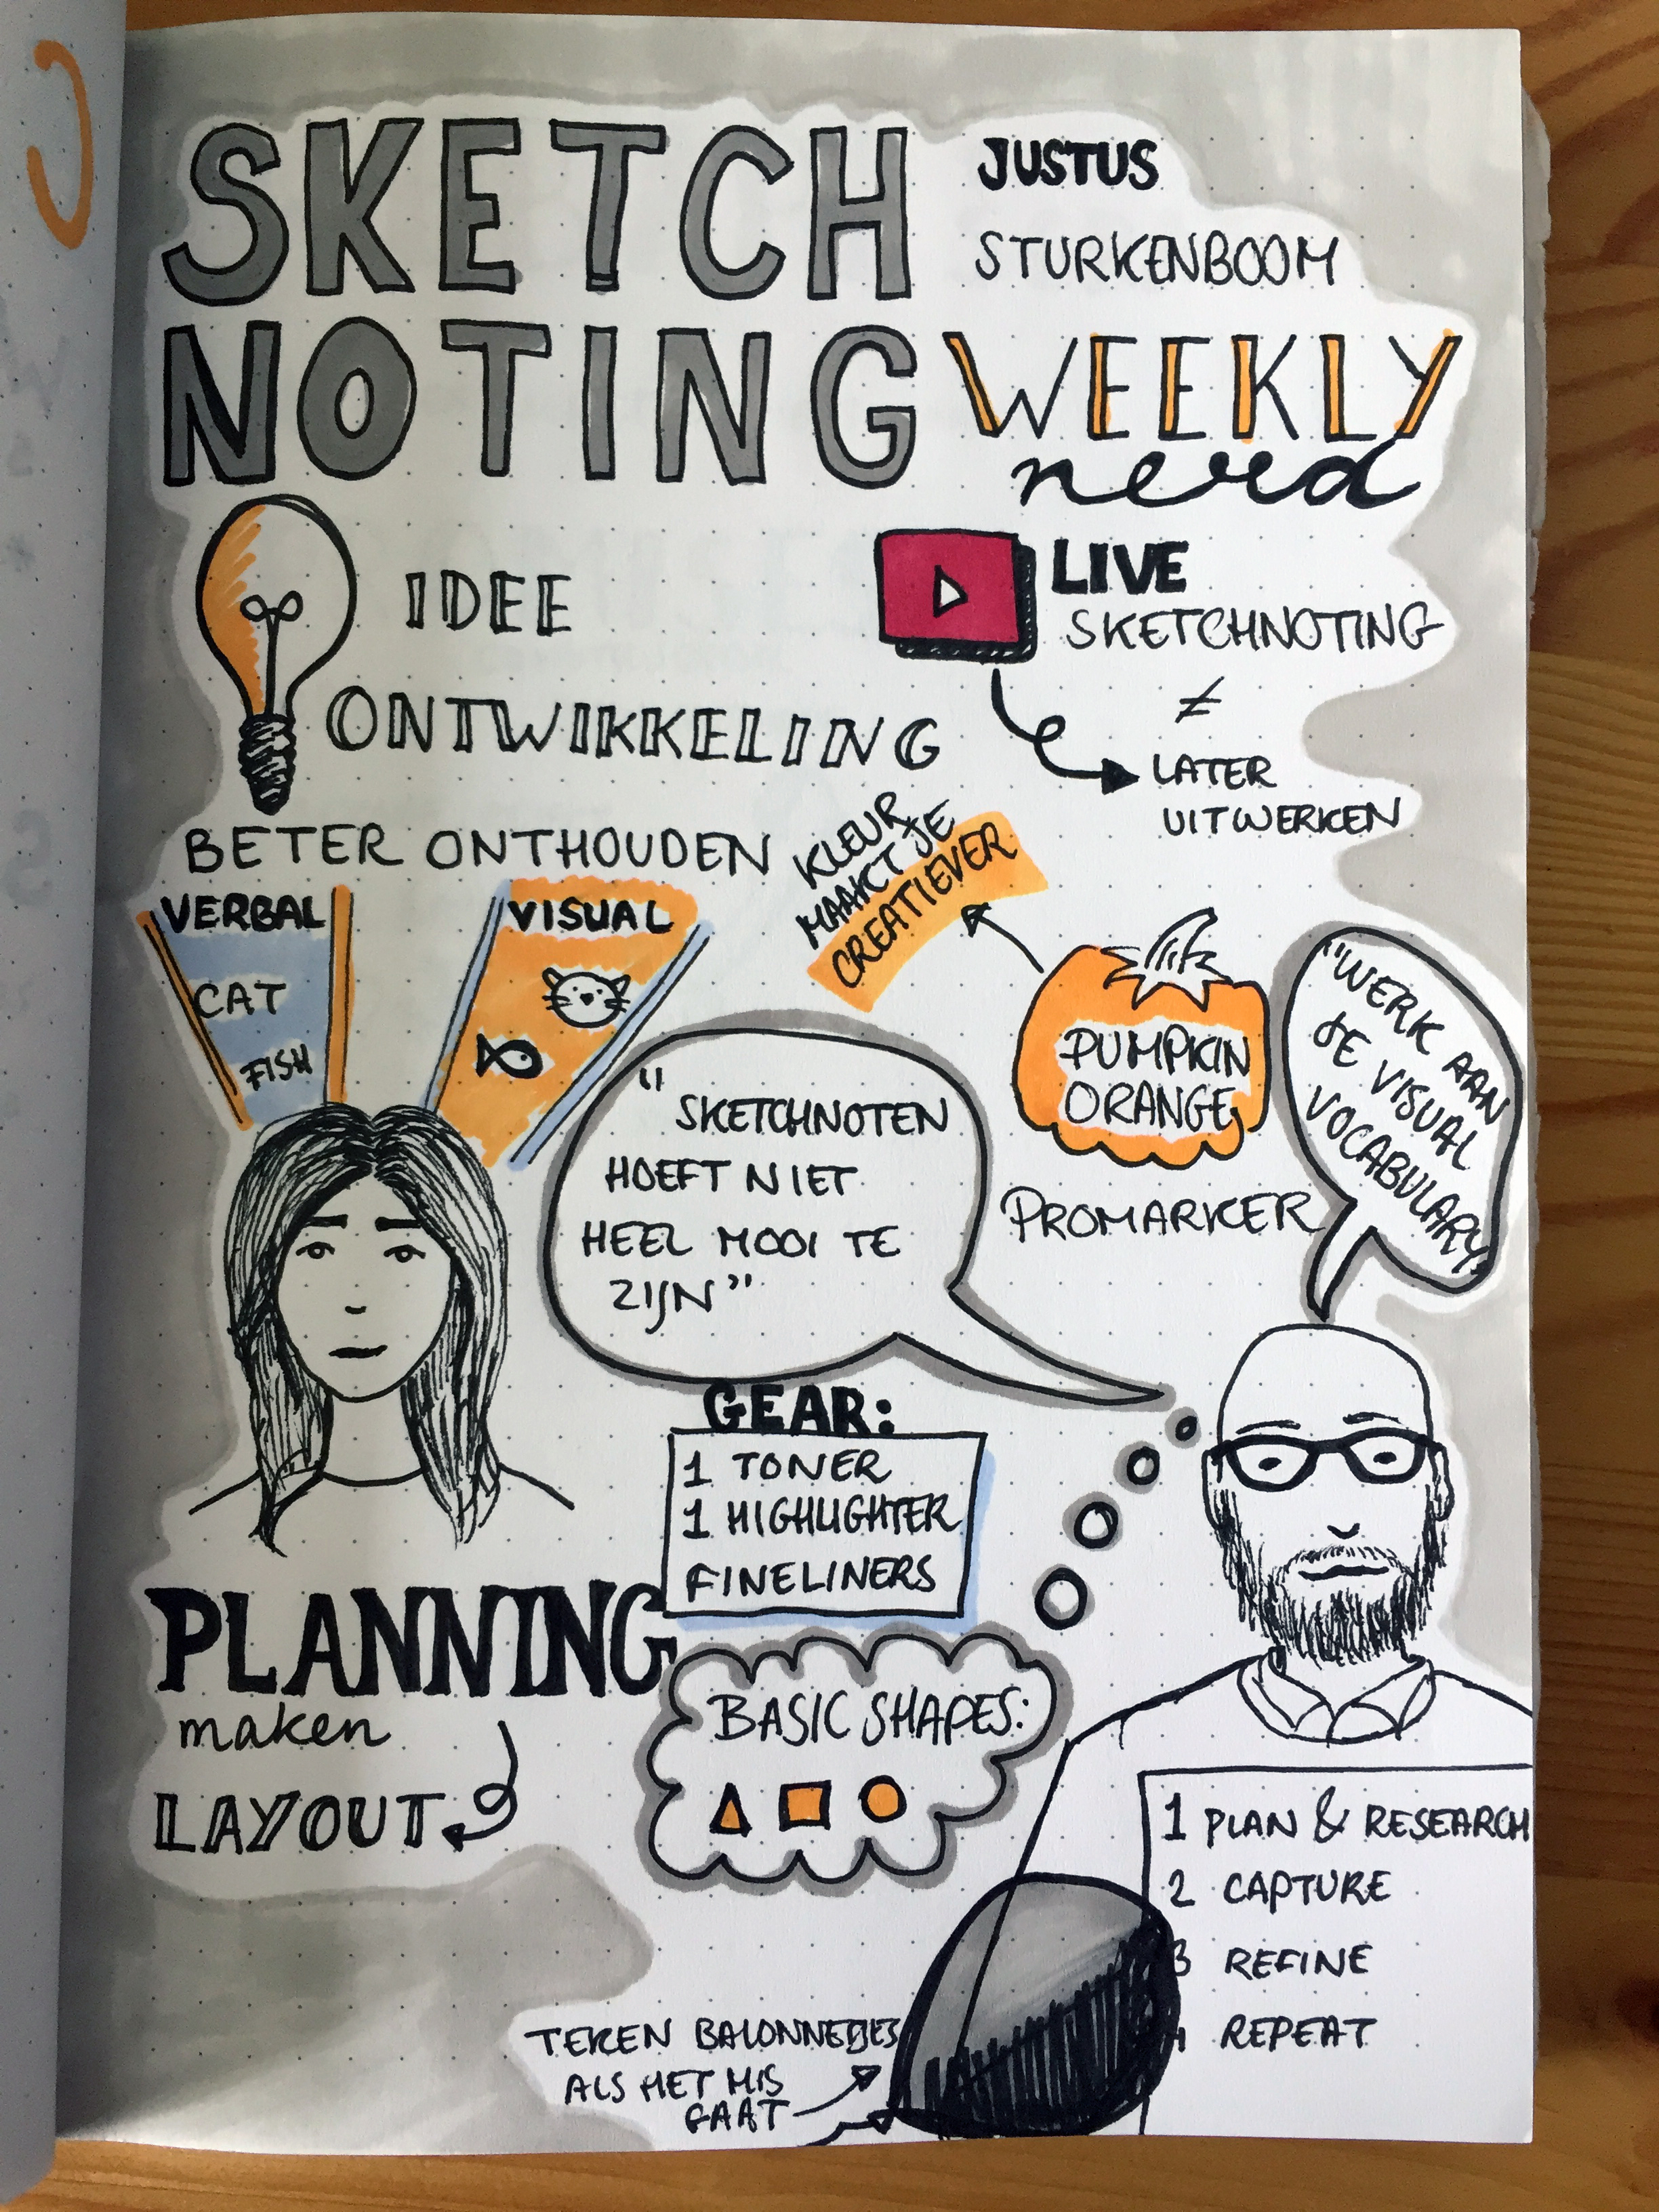 SKETCH
NOTING
JUSTUS
STURKENBOOM
WEEKLY
nerd
IDEE
ONTWIKKELING
LIVE
SKETCHNOTING
≠
LATER
UITWERKEN
BETER ONTHOUDEN
VERBAL
CAT
FISH
VISUAL
KLEUR
MAAKT JE
CREATIEVER
PUMPKIN
ORANGE
PROMARKER
"WERK AAN
JE VISUAL
VOCABULARY"
"SKETCHNOTEN
HOEFT NIET
HEEL MOOI TE
ZIJN"
GEAR:
1 TONER
1 HIGHLIGHTER
FINELINERS
PLANNING
maken
LAYOUT
BASIC SHAPES:
1 PLAN & RESEARCH
2 CAPTURE
3 REFINE
4 REPEAT
TEKEN BALONNETJES
ALS HET MIS
GAAT